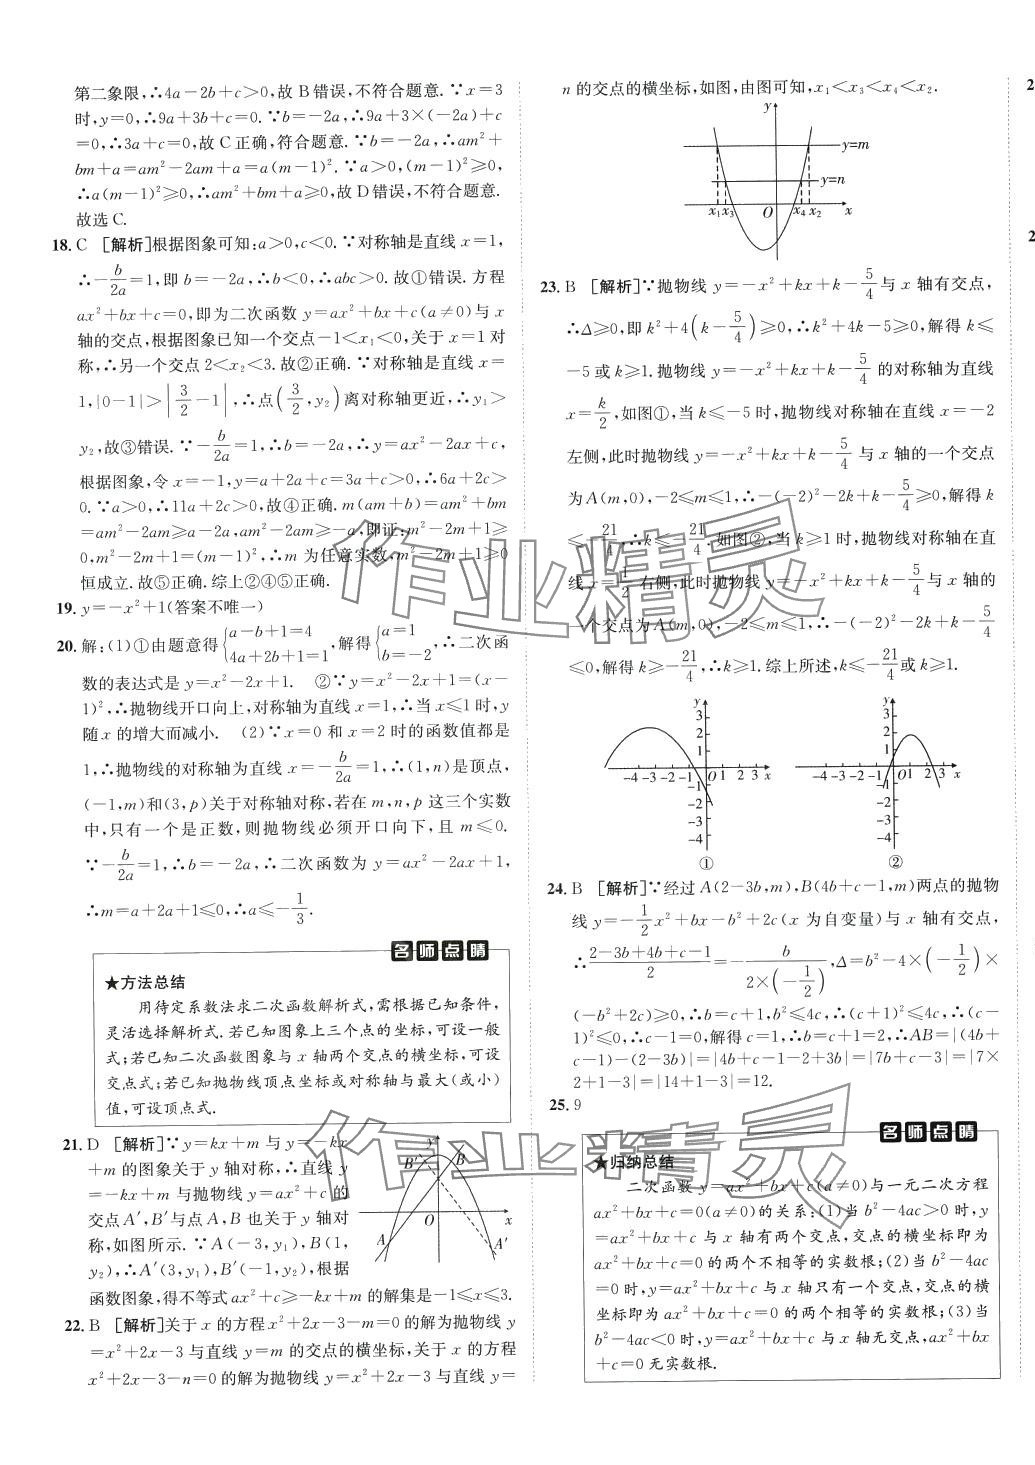 第二象限,∴4a-2b+c>0,故B错误,不符合题意.∵x=3
时,y=0,∴9a+3b+c=0.∵b=-2a,∴9a+3×(-2a)+c
=0,∴3a+c=0,故C正确,符合题意.∵b=-2a,∴am²+
bm+a=am²-2am+a=a(m-1)².∵a>0,(m-1)²≥0,
∴a(m-1)²≥0,∴am²+bm+a≥0,故D错误,不符合题意.
故选C.
18.C [解析]根据图象可知:a>0,c<0.∵对称轴是直线x=1,
∴-b/2a=1,即b=-2a,∴b<0,∴abc>0.故①错误.方程
ax²+bx+c=0,即为二次函数y=ax²+bx+c(a≠0)与x
轴的交点,根据图象已知一个交点-1<x₁<0,关于x=1对
称,∴另一个交点2<x₂<3.故②正确.∵对称轴是直线x=
1,|0-1|>|3/2-1|,∴点(3/2,y₂)离对称轴更近,∴y₁>
y₂,故③错误.∵-b/2a=1,∴b=-2a,∴y=ax²-2ax+c,
根据图象,令x=-1,y=a+2a+c=3a+c>0,∴6a+2c>
0.∵a>0,∴11a+2c>0,故④正确.m(am+b)=am²+bm
=am²-2am≥a-2a,am²-2am≥-a,即证:m²-2m+1≥
0,m²-2m+1=(m-1)²,∴m为任意实数,m²-2m+1≥0
恒成立.故⑤正确.综上②④⑤正确.
19.y=-x²+1(答案不唯一)
20.解:(1)①由题意得{a-b+1=4 4a+2b+1=1,解得{a=1 b=-2,∴二次函
数的表达式是y=x²-2x+1. ②∵y=x²-2x+1=(x-
1)²,∴抛物线开口向上,对称轴为直线x=1,∴当x≤1时,y
随x的增大而减小. (2)∵x=0和x=2时的函数值都是
1,∴抛物线的对称轴为直线x=-b/2a=1,∴(1,n)是顶点,
(-1,m)和(3,p)关于对称轴对称,若在m,n,p这三个实数
中,只有一个是正数,则抛物线必须开口向下,且m≤0.
∵-b/2a=1,∴b=-2a,∴二次函数为y=ax²-2ax+1,
∴m=a+2a+1≤0,∴a≤-1/3.
名师点睛
★方法总结
用待定系数法求二次函数解析式,需根据已知条件,
灵活选择解析式.若已知图象上三个点的坐标,可设一般
式;若已知二次函数图象与x轴两个交点的横坐标,可设
交点式;若已知抛物线顶点坐标或对称轴与最大(或小)
值,可设顶点式.
21.D [解析]∵y=kx+m与y=-kx
+m的图象关于y轴对称,∴直线y
=-kx+m与抛物线y=ax²+c的
交点A′,B′与点A,B也关于y轴对
称,如图所示.∵A(-3,y₁),B(1,
y₂),∴A′(3,y₁),B′(-1,y₂),根据
函数图象,得不等式ax²+c≥-kx+m的解集是-1≤x≤3.
y
B′
B
O
x
A
A′
22.B [解析]关于x的方程x²+2x-3-m=0的解为抛物线y
=x²+2x-3与直线y=m的交点的横坐标,关于x的方程
x²+2x-3-n=0的解为抛物线y=x²+2x-3与直线y=
n的交点的横坐标,如图,由图可知,x₁<x₃<x₄<x₂.
y
y=m
y=n
x₁ x₃ O x₄ x₂ x
23.B [解析]∵抛物线y=-x²+kx+k-5/4与x轴有交点,
∴Δ≥0,即k²+4(k-5/4)≥0,∴k²+4k-5≥0,解得k≤
-5或k≥1.抛物线y=-x²+kx+k-5/4的对称轴为直线
x=k/2,如图①,当k≤-5时,抛物线对称轴在直线x=-2
左侧,此时抛物线y=-x²+kx+k-5/4与x轴的一个交点
为A(m,0),-2≤m≤1,∴-(-2)²-2k+k-5/4≥0,解得k
≤-21/4,∴k≤-21/4.如图②,当k≥1时,抛物线对称轴在直
线x=1/2右侧,此时抛物线y=-x²+kx+k-5/4与x轴的
一个交点为A(m,0),-2≤m≤1,∴-(-2)²-2k+k-5/4
≤0,解得k≥-21/4,∴k≥1.综上所述,k≤-21/4或k≥1.
y
3
2
1
-4 -3 -2 -1 O 1 2 3 x
-1
-2
-3
-4
①
y
3
2
1
-4 -3 -2 -1 O 1 2 3 x
-1
-2
-3
-4
②
24.B [解析]∵经过A(2-3b,m),B(4b+c-1,m)两点的抛物
线y=-1/2x²+bx-b²+2c(x为自变量)与x轴有交点,
∴(2-3b+4b+c-1)/2=-b/(2×(-1/2)),Δ=b²-4×(-1/2)×
(-b²+2c)≥0,∴b=c+1,b²≤4c,∴(c+1)²≤4c,∴(c-
1)²≤0,∴c-1=0,解得c=1,∴b=c+1=2,∴AB=|(4b+
c-1)-(2-3b)|=|4b+c-1-2+3b|=|7b+c-3|=|7×
2+1-3|=|14+1-3|=12.
25.9
名师点睛
★归纳总结
二次函数y=ax²+bx+c(a≠0)与一元二次方程
ax²+bx+c=0(a≠0)的关系:(1)当b²-4ac>0时,y=
ax²+bx+c与x轴有两个交点,交点的横坐标即为
ax²+bx+c=0的两个不相等的实数根;(2)当b²-4ac
=0时,y=ax²+bx+c与x轴只有一个交点,交点的横
坐标即为ax²+bx+c=0的两个相等的实数根;(3)当
b²-4ac<0时,y=ax²+bx+c与x轴无交点,ax²+bx
+c=0无实数根.
作业精灵
作业精灵
2
2